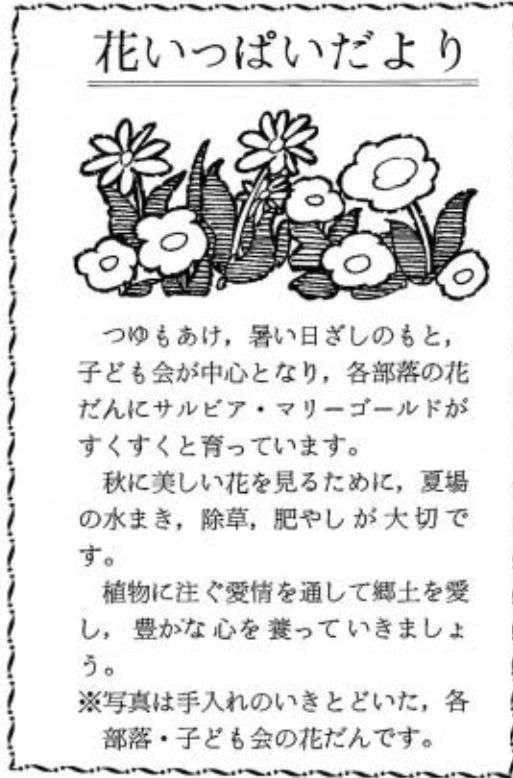 花いっぱいだより
つゆもあけ，暑い日ざしのもと，
子ども会が中心となり，各部落の花
だんにサルビア・マリーゴールドが
すくすくと育っています。
秋に美しい花を見るために，夏場
の水まき，除草，肥やしが大切で
す。
植物に注ぐ愛情を通して郷土を愛
し，豊かな心を養っていきましょ
う。
※写真は手入れのいきとどいた，各
部落・子ども会の花だんです。